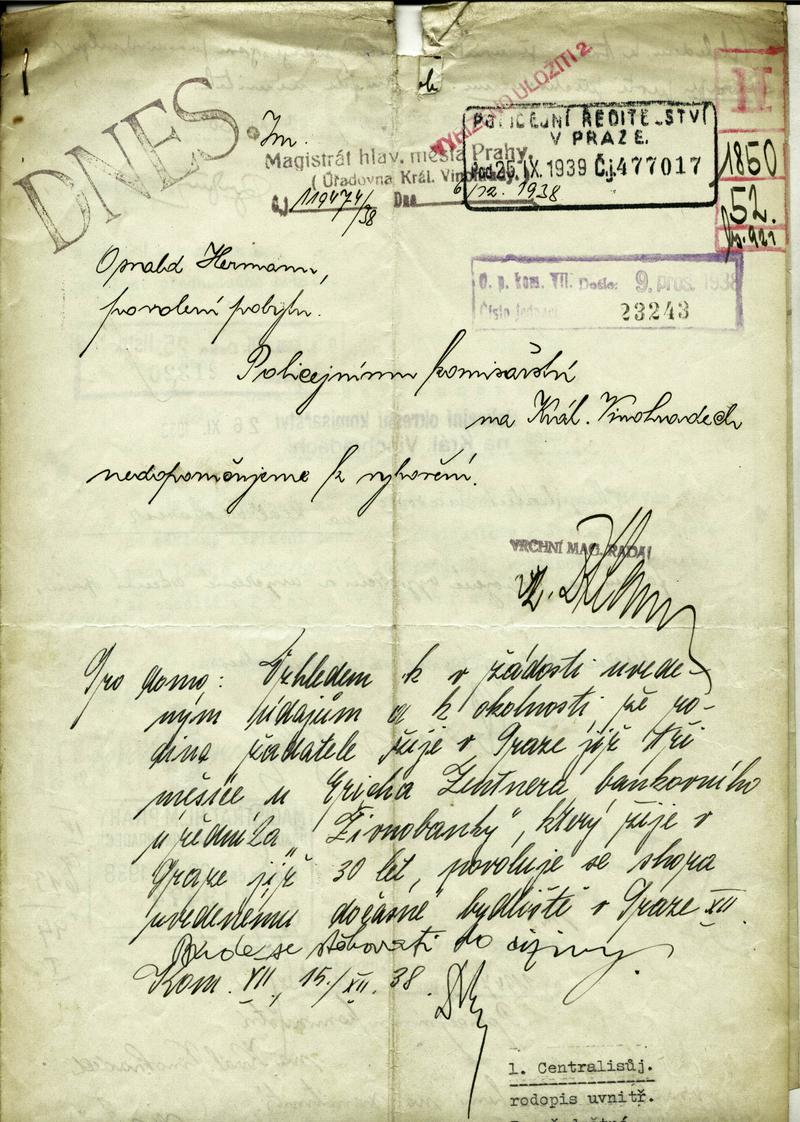 DNES.
VYHLEDÁNO ULOŽITI 2
Im.
Magistrát hlav. města Prahy,
( Úřadovna Král. Vinohrady. )
Č.j. 119474/38 Dne 6/12. 1938
POLICEJNÍ ŘEDITELSTVÍ
V PRAZE.
Pod. 25. IX. 1939 Čj. 477017
H
1850
52.
O. p. kom. VII. Došlo: 9. pros. 1938
Číslo jednací 23243
Hermann,
povolení pobytu.
Policejnímu komisařství
na Král. Vinohradech
nedoporučujeme k vyhovění.
VRCHNÍ MAG. RADA:
Pro domo: Vzhledem k v žádosti uvede-
ným údajům a k okolnosti, že ro-
dina žadatele žije v Praze již tři
měsíce u Ericha Zentnera, bankovního
úředníka „Živnobanky", který žije v
Praze již 30 let, povoluje se shora
uvedenému dočasné bydliště v Praze XII.
Bude se stěhovati do ciziny.
Kom. VII, 15./XII. 38.
1. Centralisůj.
rodopis uvnitř.